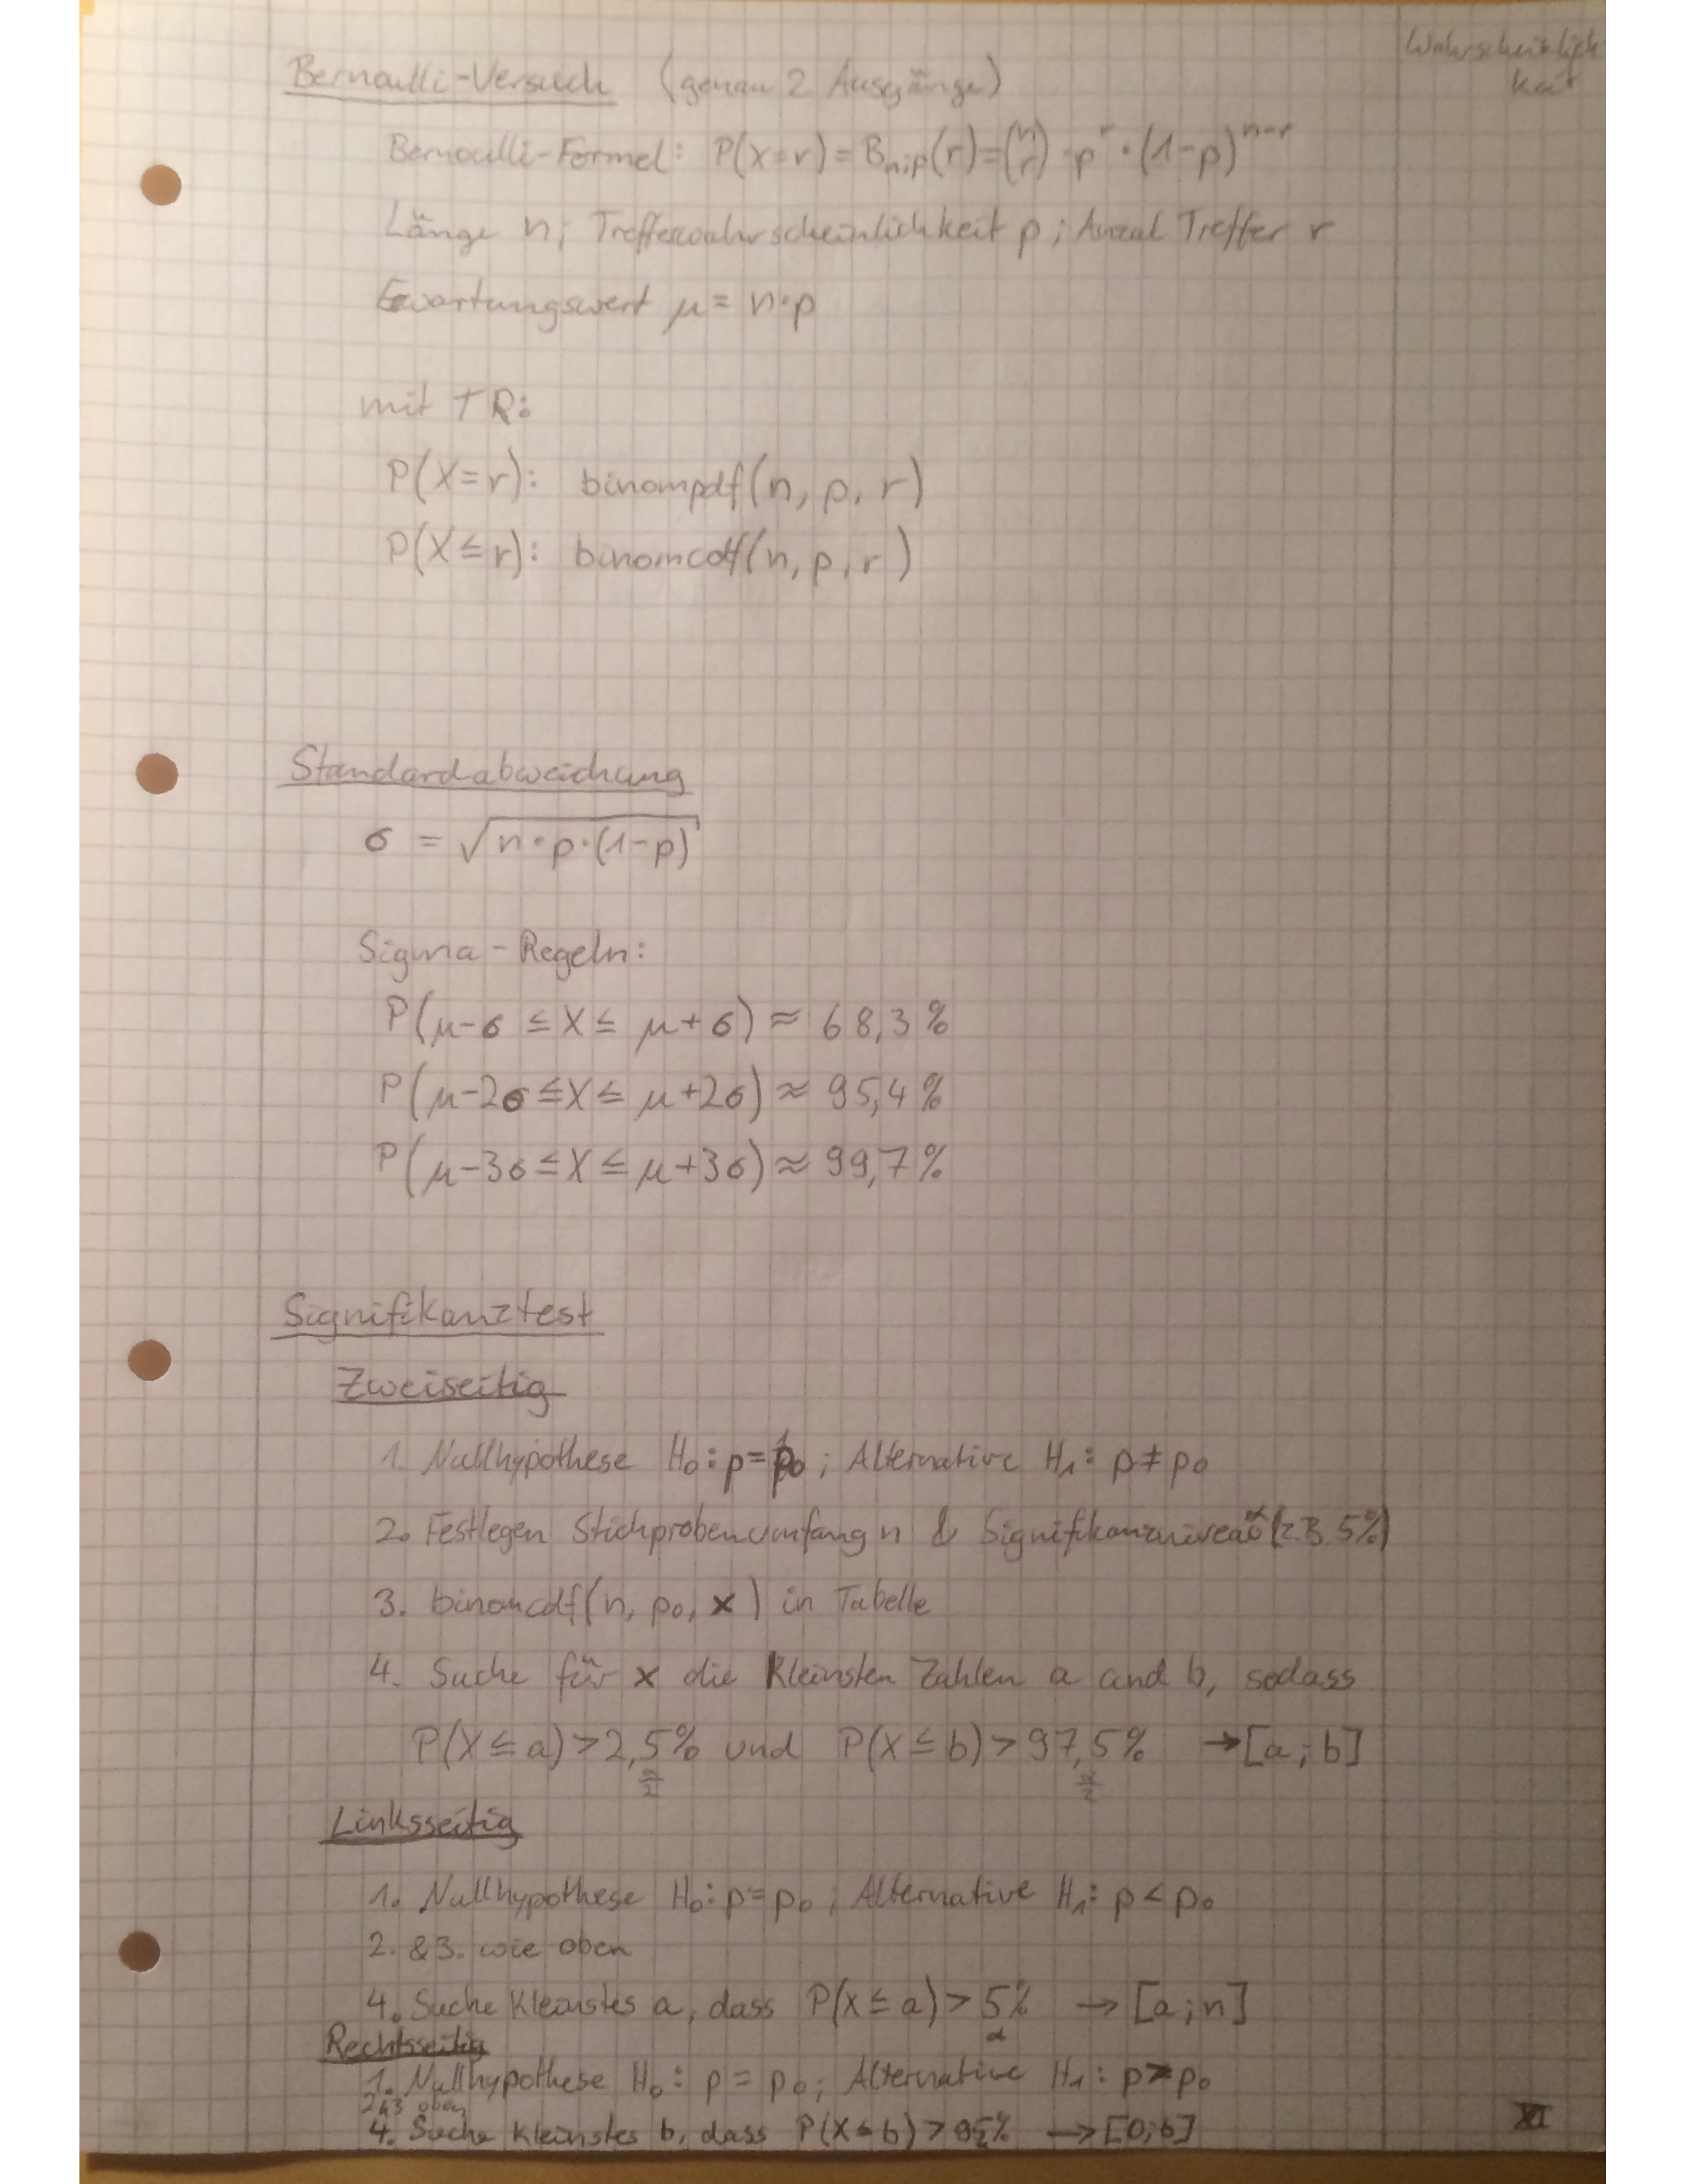 Wahrscheinlich
keit
Bernoulli-Versuch (genau 2 Ausgänge)
Bernoulli-Formel: P(X=r) = B_{n;p}(r) = (n r) · p^r · (1-p)^{n-r}
Länge n; Trefferwahrscheinlichkeit p; Anzal Treffer r
Erwartungswert μ = n·p
mit TR:
P(X=r): binompdf(n, p, r)
P(X≤r): binomcdf(n, p, r)
Standardabweichung
σ = √(n·p·(1-p))
Sigma-Regeln:
P(μ-σ ≤ X ≤ μ+σ) ≈ 68,3%
P(μ-2σ ≤ X ≤ μ+2σ) ≈ 95,4%
P(μ-3σ ≤ X ≤ μ+3σ) ≈ 99,7%
Signifikanztest
Zweiseitig
1. Nullhypothese H₀: p=p₀; Alternative H₁: p≠p₀
2. Festlegen Stichprobenumfang n & Signifikanzniveau α (z.B. 5%)
3. binomcdf(n, p₀, x) in Tabelle
4. Suche für x die kleinsten Zahlen a und b, sodass
P(X≤a) > 2,5% und P(X≤b) > 97,5% → [a; b]
α/2 α/2
Linksseitig
1. Nullhypothese H₀: p=p₀; Alternative H₁: p<p₀
2. & 3. wie oben
4. Suche kleinstes a, dass P(X≤a) > 5% → [a; n]
α
Rechtsseitig
1. Nullhypothese H₀: p = p₀; Alternative H₁: p>p₀
2&3 oben
4. Suche kleinstes b, dass P(X≤b) > 95% → [0; b]
XI